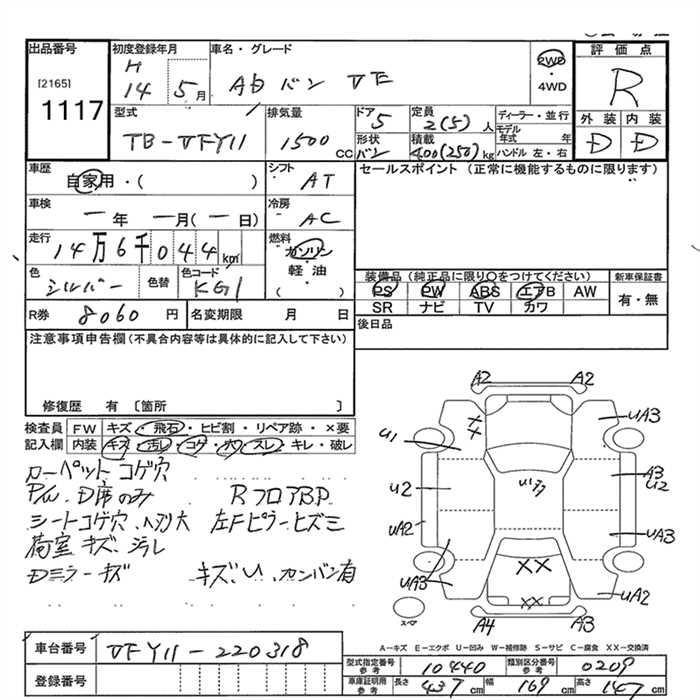 出品番号
[2165]
1117
初度登録年月
H
14 5月
車名・グレード
AD バン VE
2WD
・
4WD
評価点
R
外装 内装
D D
型式
TB-VFY11
排気量
1500
CC
ドア
5
形状
バン
定員
2(5)人
積載
400(250)kg
ディーラー・並行
モデル
年式 年
ハンドル 左・右
車歴
自家用・( )
シフト
AT
セールスポイント (正常に機能するものに限ります)
車検
一年 一月(一日)
冷房
AC
走行
14万6千044km
燃料
ガソリン
・
軽油
( )
色
シルバー
色替
色コード
KG1
装備品 (純正品に限り○をつけてください)
新車保証書
PS PW ABS エアB AW
SR ナビ TV カワ
有・無
R券 8060円
名変期限 月 日
後日品
注意事項申告欄(不具合内容等は具体的に記入して下さい)
修復歴 有 〔箇所 〕
検査員 FW キズ・飛石・ヒビ割・リペア跡・×要
記入欄 内装 キズ・汚レ・コゲ・穴・スレ・キレ・破レ
カーペットコゲ穴
P/W. D席のみ RフロアBP
シートコゲ穴、ヘタリ大 左Fピラーヒズミ
荷室キズ、汚レ
Dミラーキズ キズ、U、カンバン有
A2 A2
XX
UA3
U1
A3
U2
U2
UA2
UA3
UA3
XX
UA2
スペア
A4
XX
A3
A-キズ E-エクボ U-凹み W-補修跡 S-サビ C-腐食 XX-交換済
車台番号 VFY11-220318
登録番号
型式指定番号
参考
10440
類別区分番号
参考
0209
車庫証明用
参考
長さ 437cm 幅 169cm 高さ 147cm